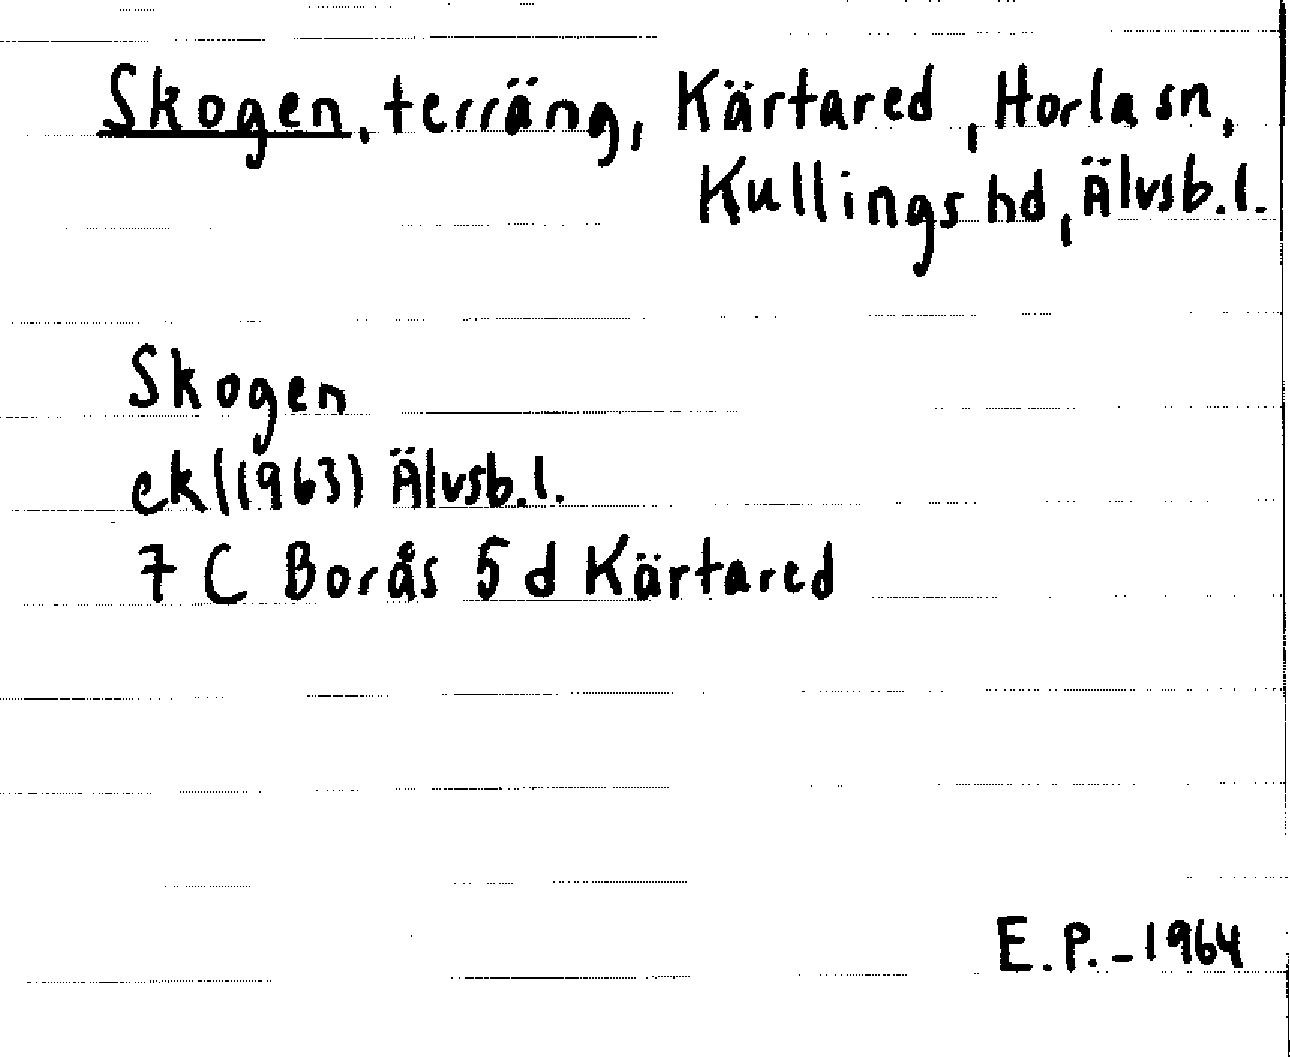 Skogen, terräng, Kärtared, Horla sn,
Kullings hd, Älvsb.l.
Skogen
ek (1963) Älvsb.l.
7 C Borås 5 d Kärtared
E.P.-1964